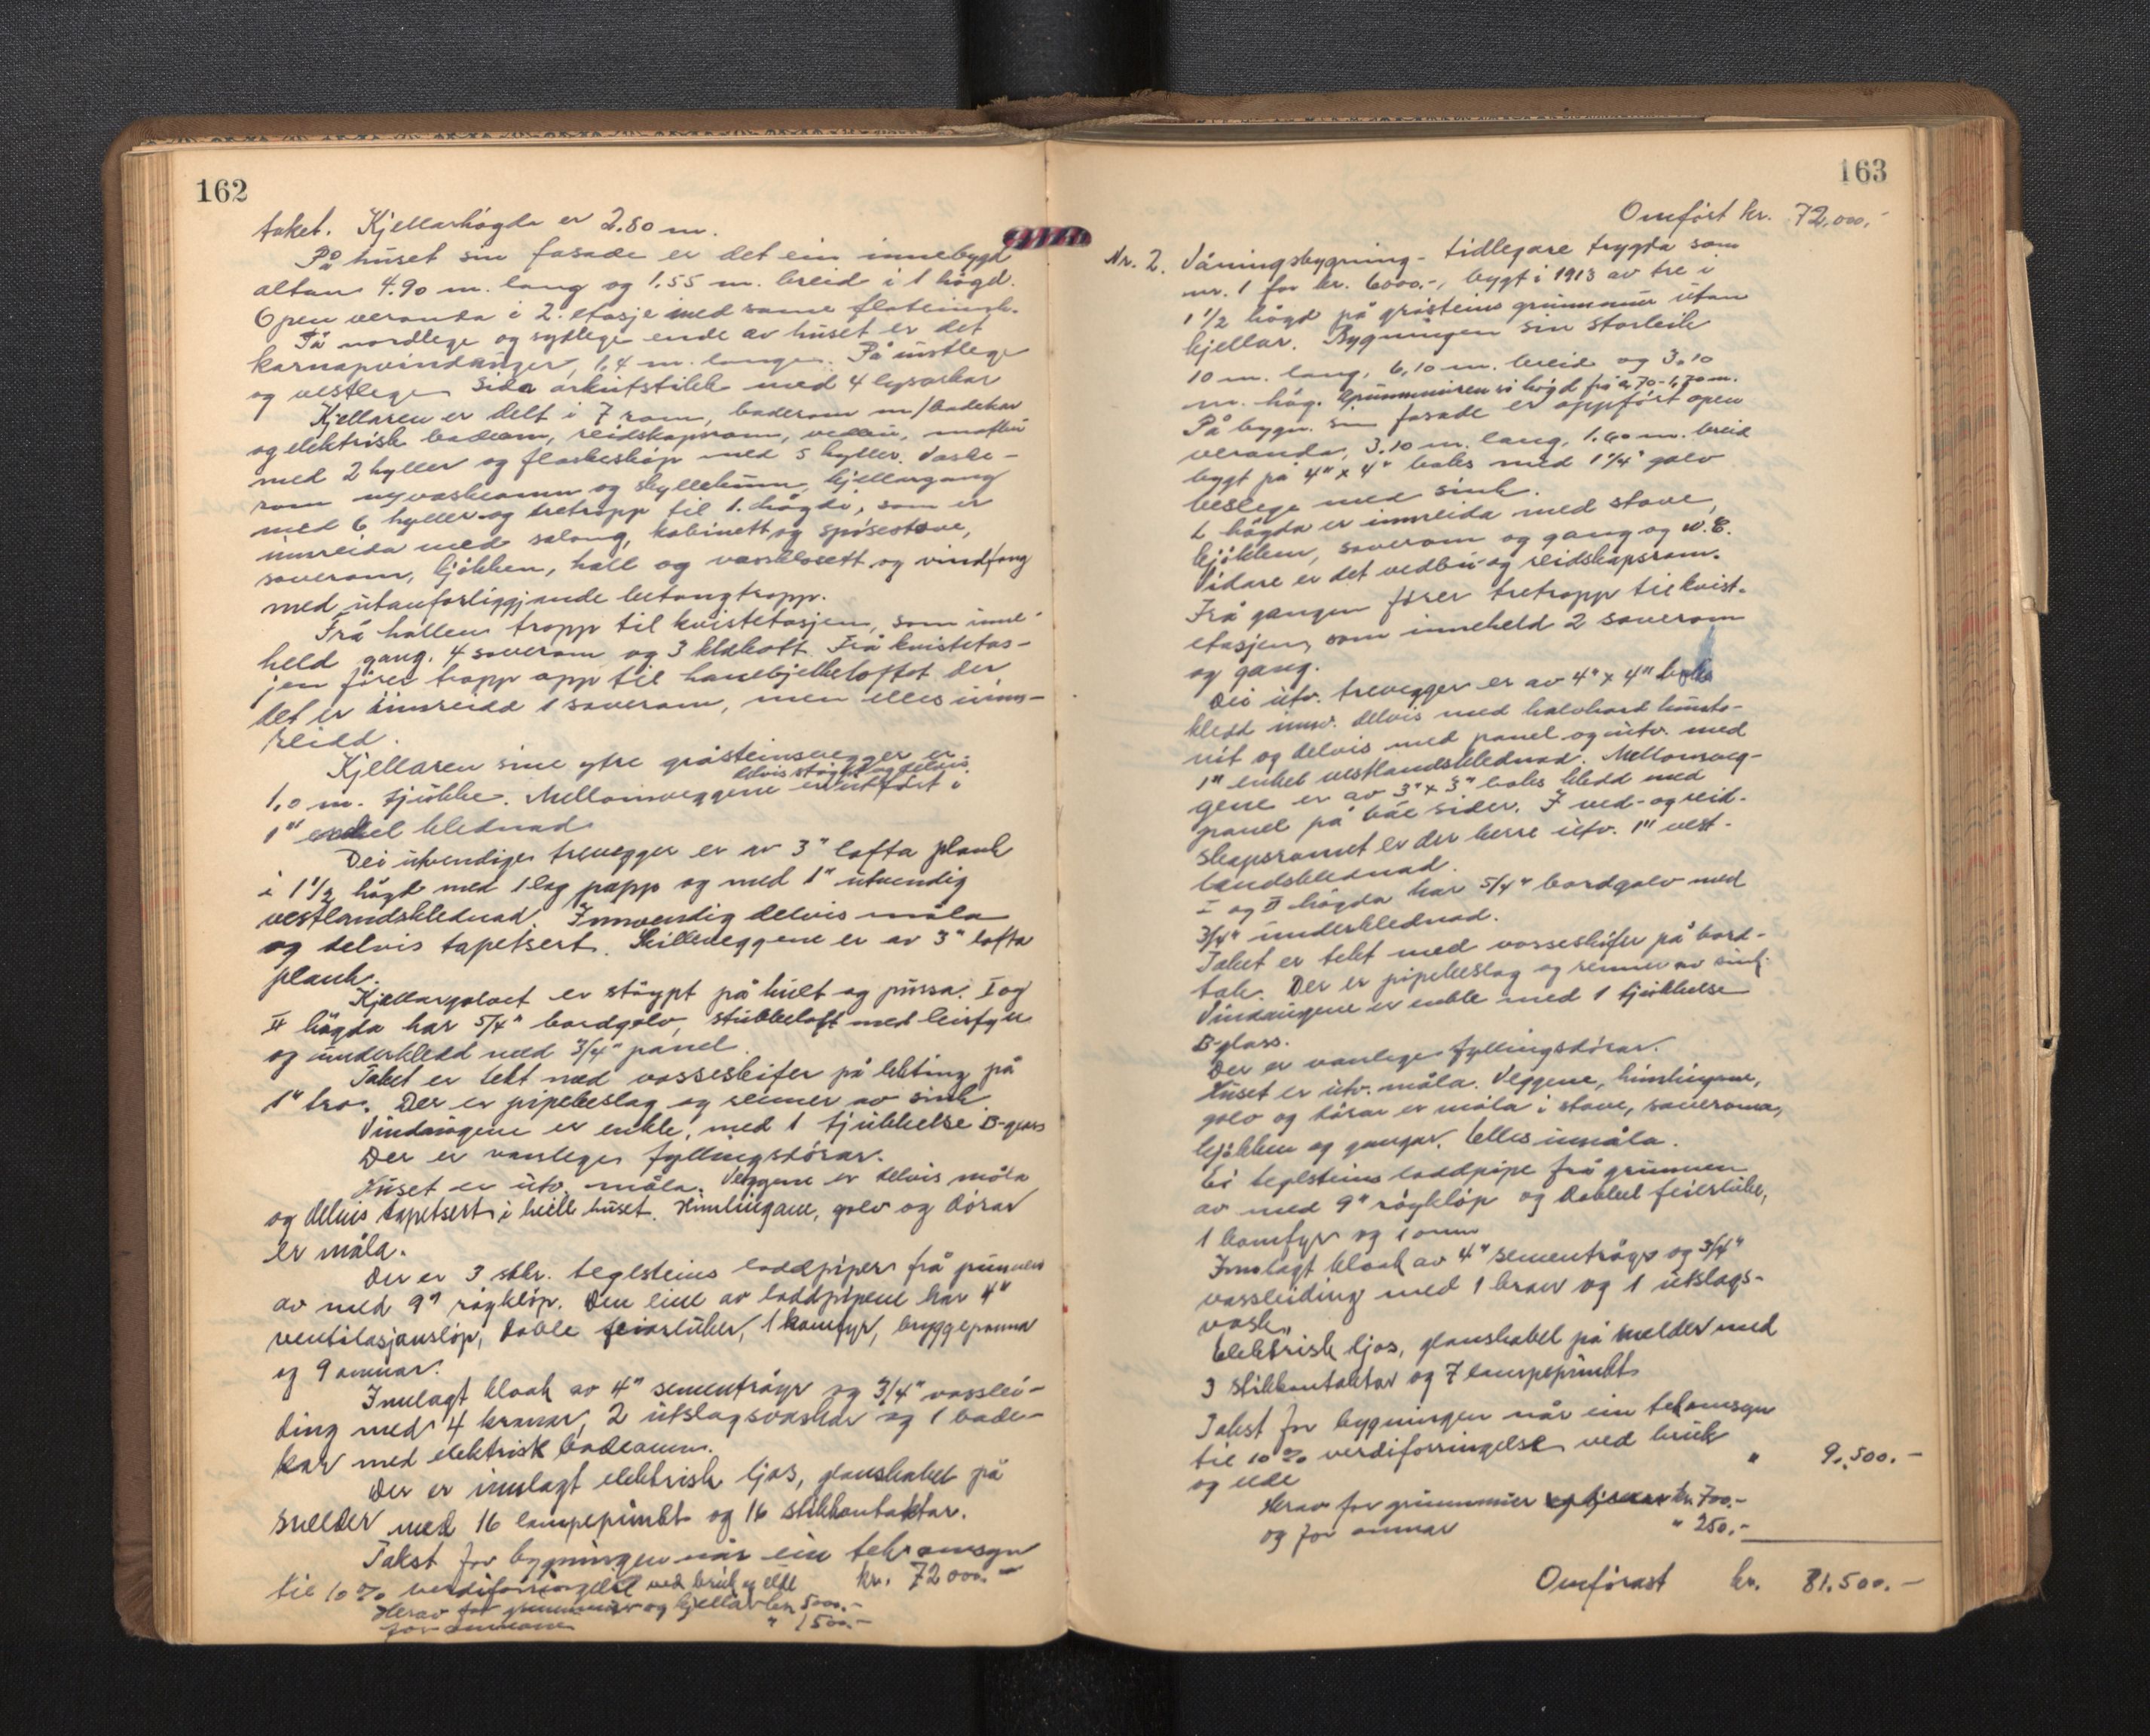 162
taket. Kjellarhögda er 2.80 m.
På huset sin fasade er det ein innebygd
altan 4.90 m. lang og 1.55 m. breid i 1 högd.
Open veranda i 2. etasje med same flateinnh.
På nordlege og sydlege ende av huset er det
karnapvindauger, 1,4 m. lange. På austlege
og vestlege sida arkutstikk med 4 lysarkar
Kjellaren er delt i 7 rom, baderom m/badekar
og elektrisk badeomn, reidskapsrom, vedbu, matbu
med 2 hyller og flaskeskåp med 5 hyller. Vaske-
rom m/vaskeomn og skyllekum, kjellargang
med 6 hyller og tretropp til 1. högdi, som er
innreida med salong, kabinett og spisestove,
soverom, kjökken, hall og vassklosett og vindfang
med utanforliggjande betongtropp.
Frå hallen tropp til kvistetasjen, som inne-
held gang, 4 soverom og 3 klækott. Frå kvistetas-
jen förer tropp opp til hanebjelkeloftet der
det er innreidd 1 soverom, men elles uinn-
reidd.
Kjellaren sine ytre gråsteinsvegger er
1,0 m. tjukke. Mellomveggene er delvis støypt og delvis utfört i
1" enkel klednad
Dei utvendige trevegger er av 3" lafta plank
i 1 1/2 högd med 1 lag papp og med 1" utvendig
vestlandsklednad. Innvendig delvis måla
og delvis tapetsert. Skilleveggene er av 3" lafta
plank.
Kjellargolvet er stöypt på kult og pussa. I og
II högda har 5/4" bordgolv, stubbeloft med leirfyll
og underkledd med 3/4" panel.
Taket er tekt med vosseskifer på lekting på
1" tro. Der er pipebeslag og renner av sink.
Vindaugene er enkle, med 1 tjukkelse B-glass
Der er vanlege fyllingsdörar.
Huset er utv. måla. Veggene er delvis måla
og delvis tapetsert i heile huset. Himlingane, golv og dörar
er måla.
Der er 3 stkr. teglsteins loddpiper frå grunnen
av med 9" röyklöp. Den eine av loddpipene har 4"
ventilasjonslöp, doble feierluker, 1 komfyr, bryggepanna
og 9 omnar.
Innlagt kloak av 4" sementröyr og 3/4" vasslei-
ding med 4 kranar, 2 utslagsvaskar og 1 bade-
kar med elektrisk badeomn.
Der er innlagt elektrisk ljos, glanskabel på
smelder med 16 lampepunkt og 16 stikkontaktar.
Takst for bygningen når ein tek omsyn
til 10 % verdiforringelse ved bruk og elde kr. 72 000.-
Herav for grunnmur og kjellar kr. 5000.-
for omnane " 1500.-
163
Omfört kr. 72,000,-
Nr. 2. Våningsbygning - tidlegare trygda som
nr. 1 for kr. 6000.-, bygt i 1913 av tre i
1 1/2 högd på gråsteins grunnmur utan
kjellar. Bygningen sin storleik
10 m. lang, 6,10 m. breid og 3,10
m. høg. Grunnmuren si högd frå 0,70-1,70 m.
På bygn. sin fasade er oppfört open
veranda, 3.10 m. lang, 1.60 m. breid
bygt på 4" x 4" boks med 1 1/4" golv
beslege med sink.
1. högda er innreida med stove,
kjökken, soverom og gang og W.C.
Vidare er det vedbu og reidskapsrom.
Frå gangen förer tretropp til kvist-
etasjen, som inneheld 2 soverom
og gang.
Dei utv. trevegger er av 4" x 4" boks
kledd innv. delvis med halvhard hunto-
nit og delvis med panel og utv. med
1" enkel vestlandsklednad. Mellomveg-
gene er av 3" x 3" boks kledd med
panel på båe sider. I ved- og reid-
skapsromet er der berre utv. 1" vest-
landsklednad.
I og II högda har 5/4" bordgolv med
3/4" underklednad.
Taket er tekt med vosseskifer på bord-
tak. Der er pipebeslag og renner av sink.
Vindaugene er enkle med 1 tjukkelse
B-glass.
Der er vanlege fyllingsdörar.
Huset er utv. måla. Veggene, himlingane,
golv og dörar er måla i stove, soveroma,
kjökken og gangar. Elles umåla.
Ei teglsteins loddpipe frå grunnen
av med 9" röyklöp og dobbel feierluke,
1 komfyr og 1 omn
Innlagt kloak av 4" sementröyr og 3/4"
vassleiding med 1 kran og 1 utslags-
vask.
Elektrisk ljos, glanskabel på smelder med
3 stikkontaktar og 7 lampepunkt
Takst for bygningen når ein tek omsyn
til 10 % verdiforringelse ved bruk
og elde " 9.500.-
Herav for grunnmur og kjellar kr. 700.-
og for omnar " 250,-
Omförast kr. 81.500.-